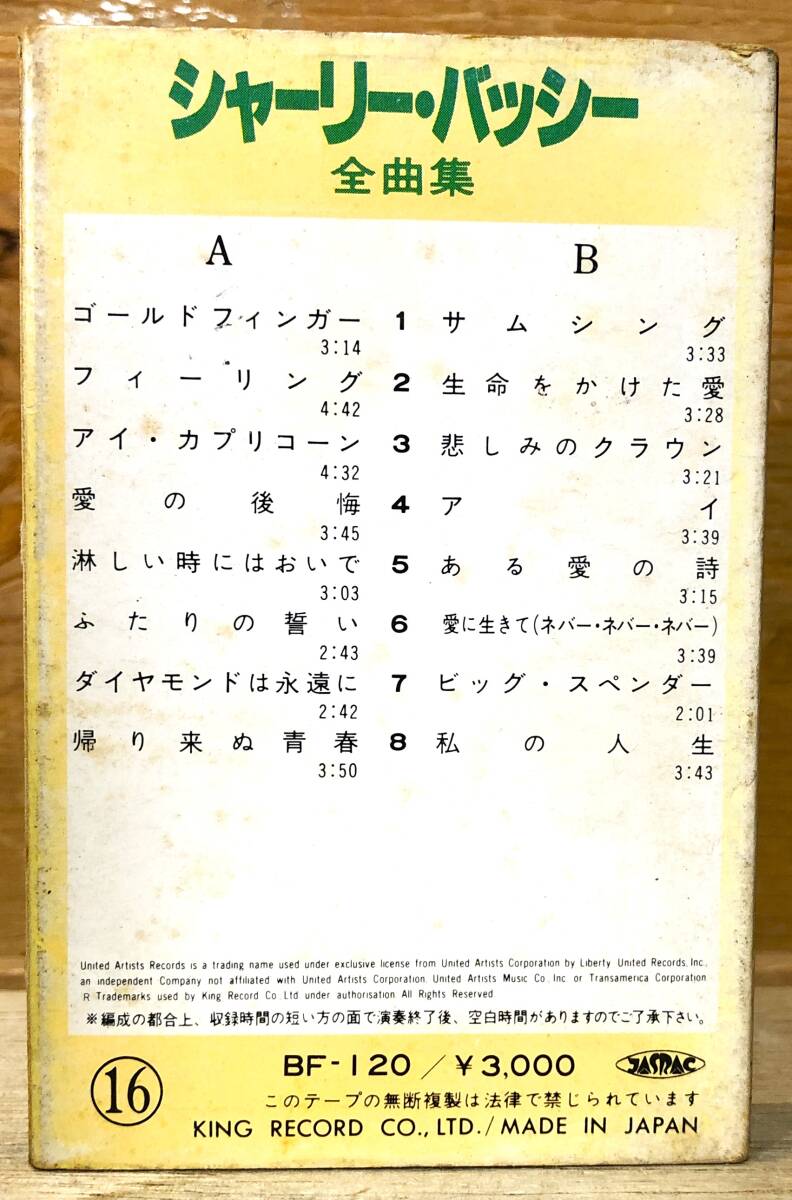 シャーリー・バッシー
全曲集
A B
ゴールドフィンガー 1 サムシング
3:14 3:33
フィーリング 2 生命をかけた愛
4:42 3:28
アイ・カプリコーン 3 悲しみのクラウン
4:32 3:21
愛の後悔 4 アイ
3:45 3:39
淋しい時にはおいで 5 ある愛の詩
3:03 3:15
ふたりの誓い 6 愛に生きて(ネバー・ネバー・ネバー)
2:43 3:39
ダイヤモンドは永遠に 7 ビッグ・スペンダー
2:42 2:01
帰り来ぬ青春 8 私の人生
3:50 3:43
United Artists Records is a trading name used under exclusive license from United Artists Corporation by Liberty United Records, Inc.,
an independent Company not affiliated with United Artists Corporation, United Artists Music Co, Inc or Transamerica Corporation
R Trademarks used by King Record Co Ltd under authorisation All Rights Reserved
※編成の都合上、収録時間の短い方の面で演奏終了後、空白時間がありますのでご了承下さい。
16 BF-120/¥3,000 JASRAC
このテープの無断複製は法律で禁じられています
KING RECORD CO., LTD./MADE IN JAPAN